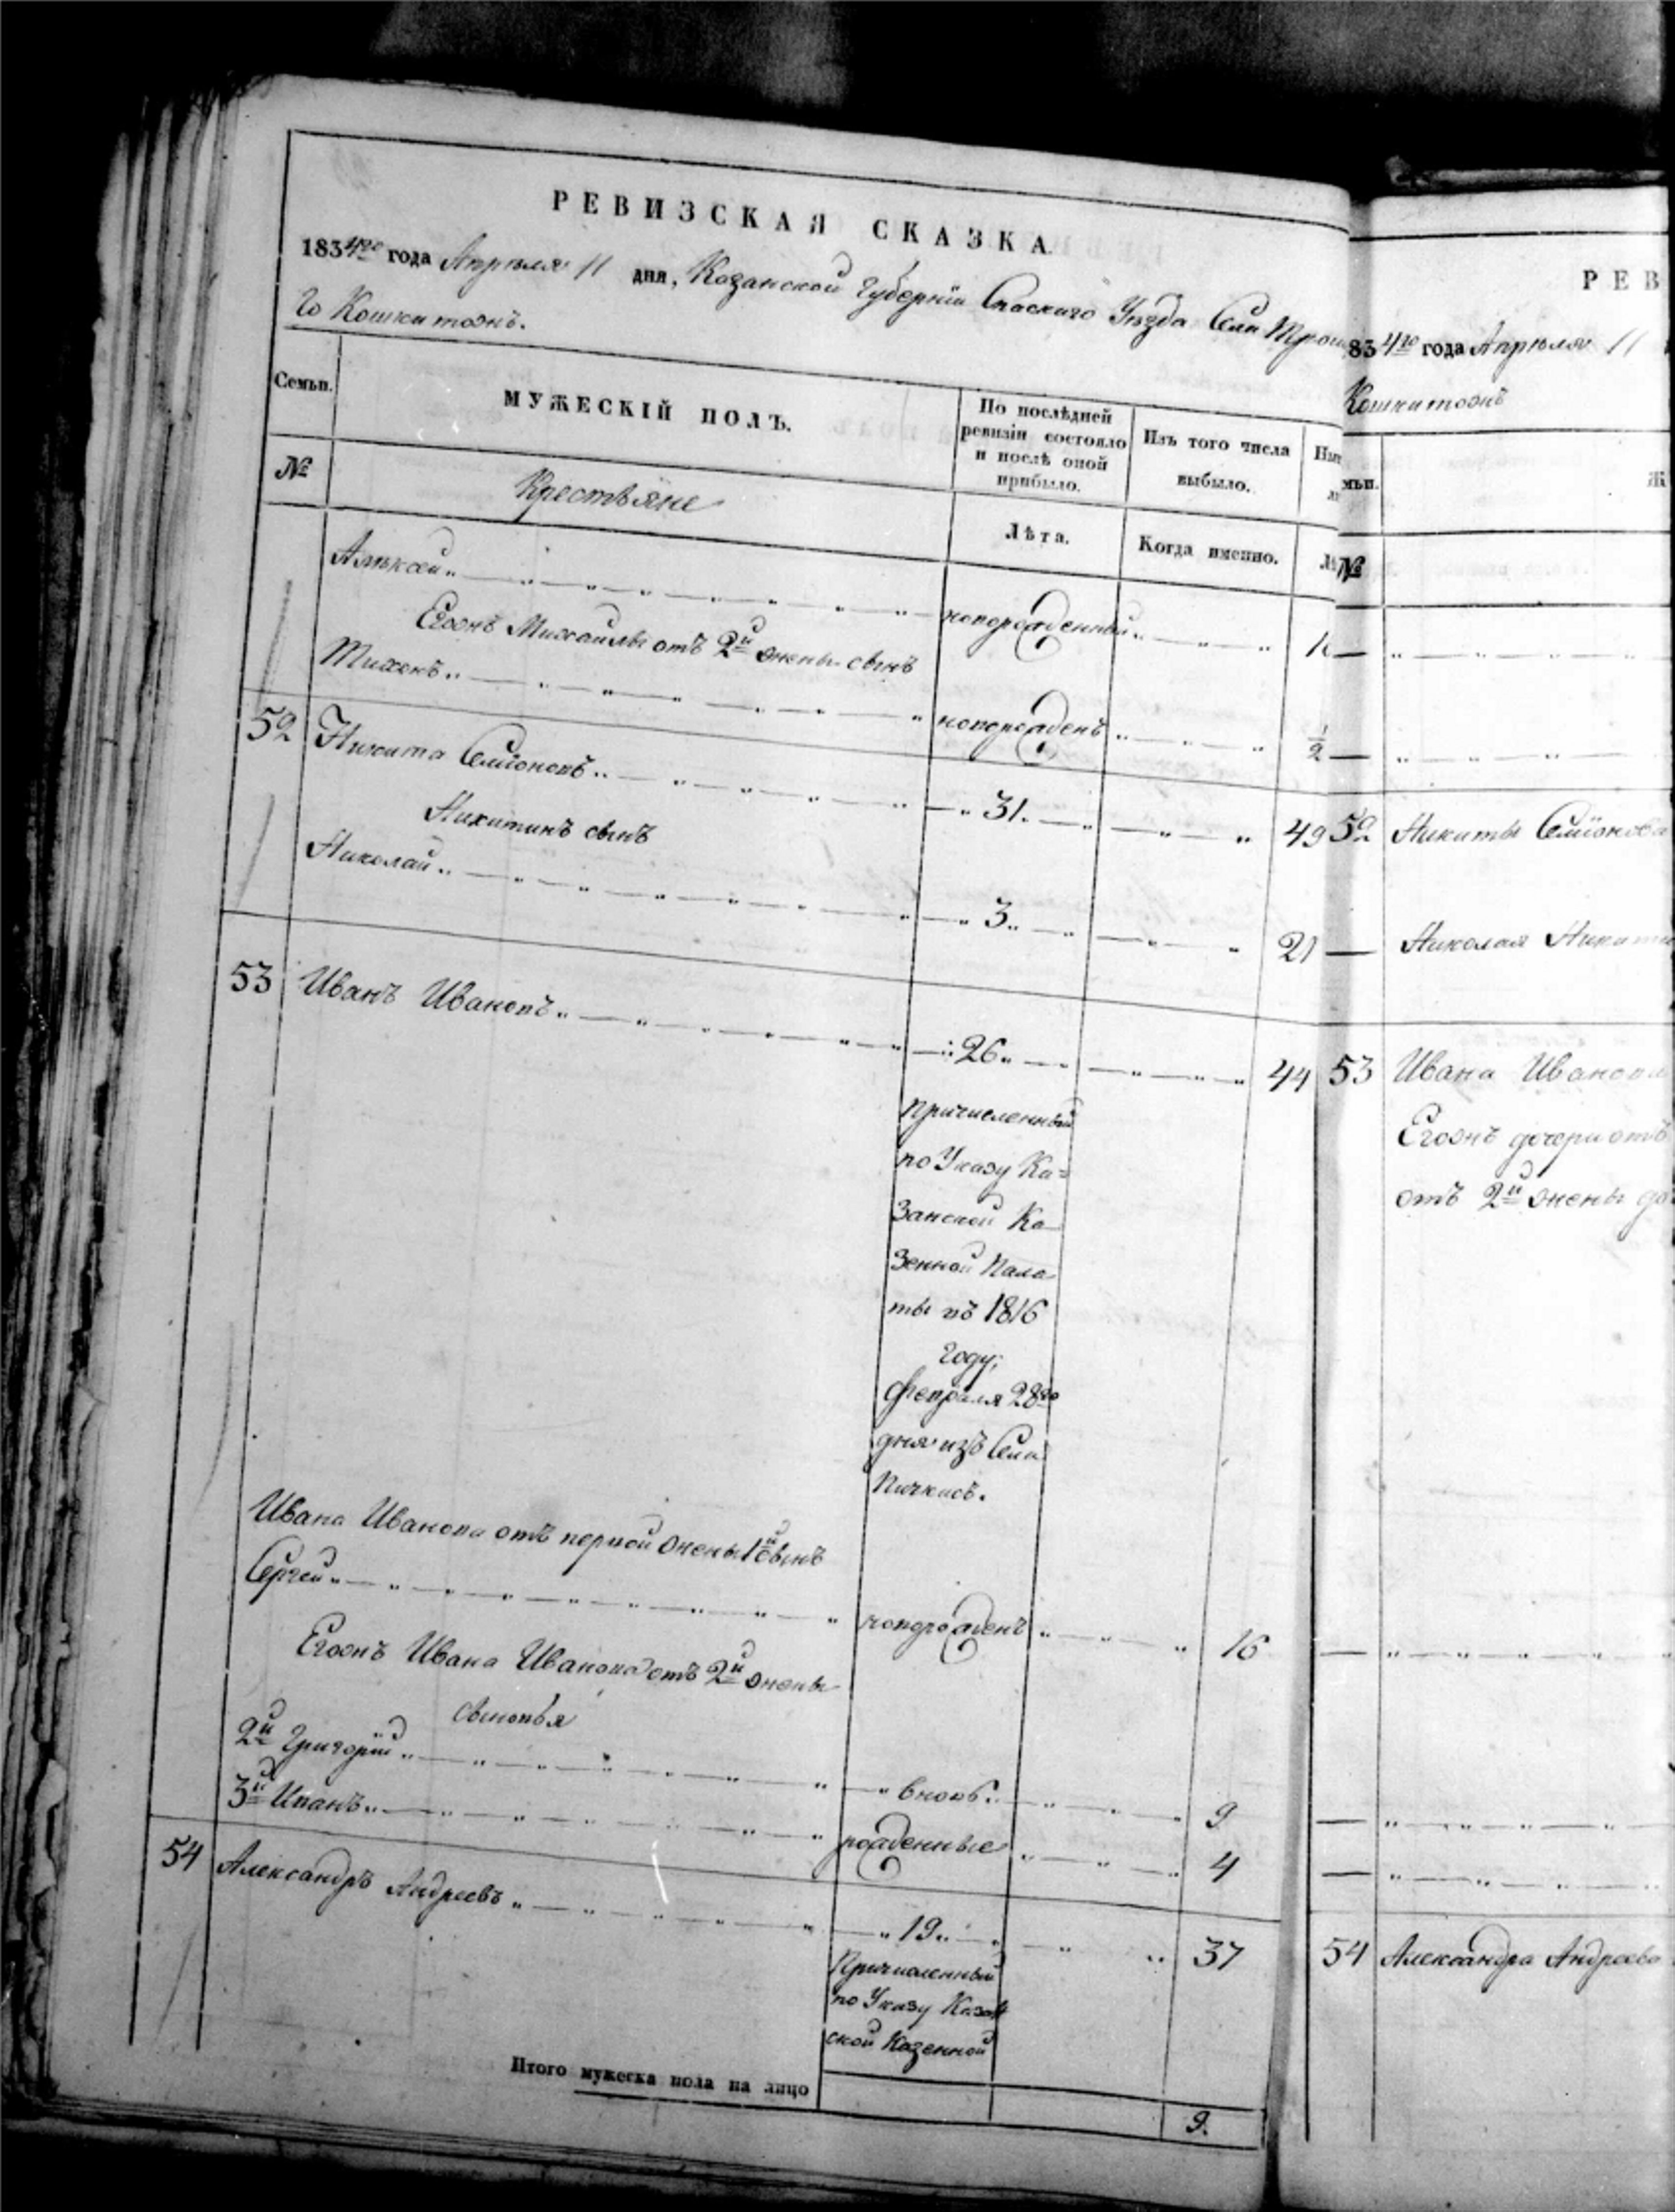 РЕВИЗСКАЯ СКАЗКА.
1834го года Апрѣля 11 дня, Казанской Губернїи Спаскаго Уѣзда Села Трои
Кошки тожъ.
Семьи.
МУЖЕСКІЙ ПОЛЪ.
По послѣдней ревизіи состояло и послѣ оной прибыло.
Изъ того числа выбыло.
№
Крестьяне
Лѣта.
Когда именно.
Алѣксѣй новорожденный
Егожъ Михаилы отъ 2й жены сынъ
Тихонъ новорожденъ 1/2
52 Никита Семїоновъ 31. 49
Никитинъ сынъ
Николай 3. 21
53 Иванъ Ивановъ 26 44
причисленный
по Указу Ка=
занской Ка
зенной Пала
ты въ 1816
году;
февраля 28го
дня изъ Села
Пичкасъ.
Ивана Иванова отъ первой жены 1й сынъ
Сергей новорожденъ 16
Егожъ Ивана Иванова отъ 2й жены
сыновья
2й Григорїй вновь 9
3й Иванъ рожденные 4
54 Александръ Андреевъ 19 37
Причисленный
по Указу Казан
ской Казенной
Итого мужеска пола на лицо 9.
РЕВ
834го года Апрѣля 11
Кошки тожъ
мьи.
Ж
№
52 Никиты Семїонова
Николая Никити
53 Ивана Иванова
Егожъ дочери отъ
отъ 2й жены до
54 Александра Андреева